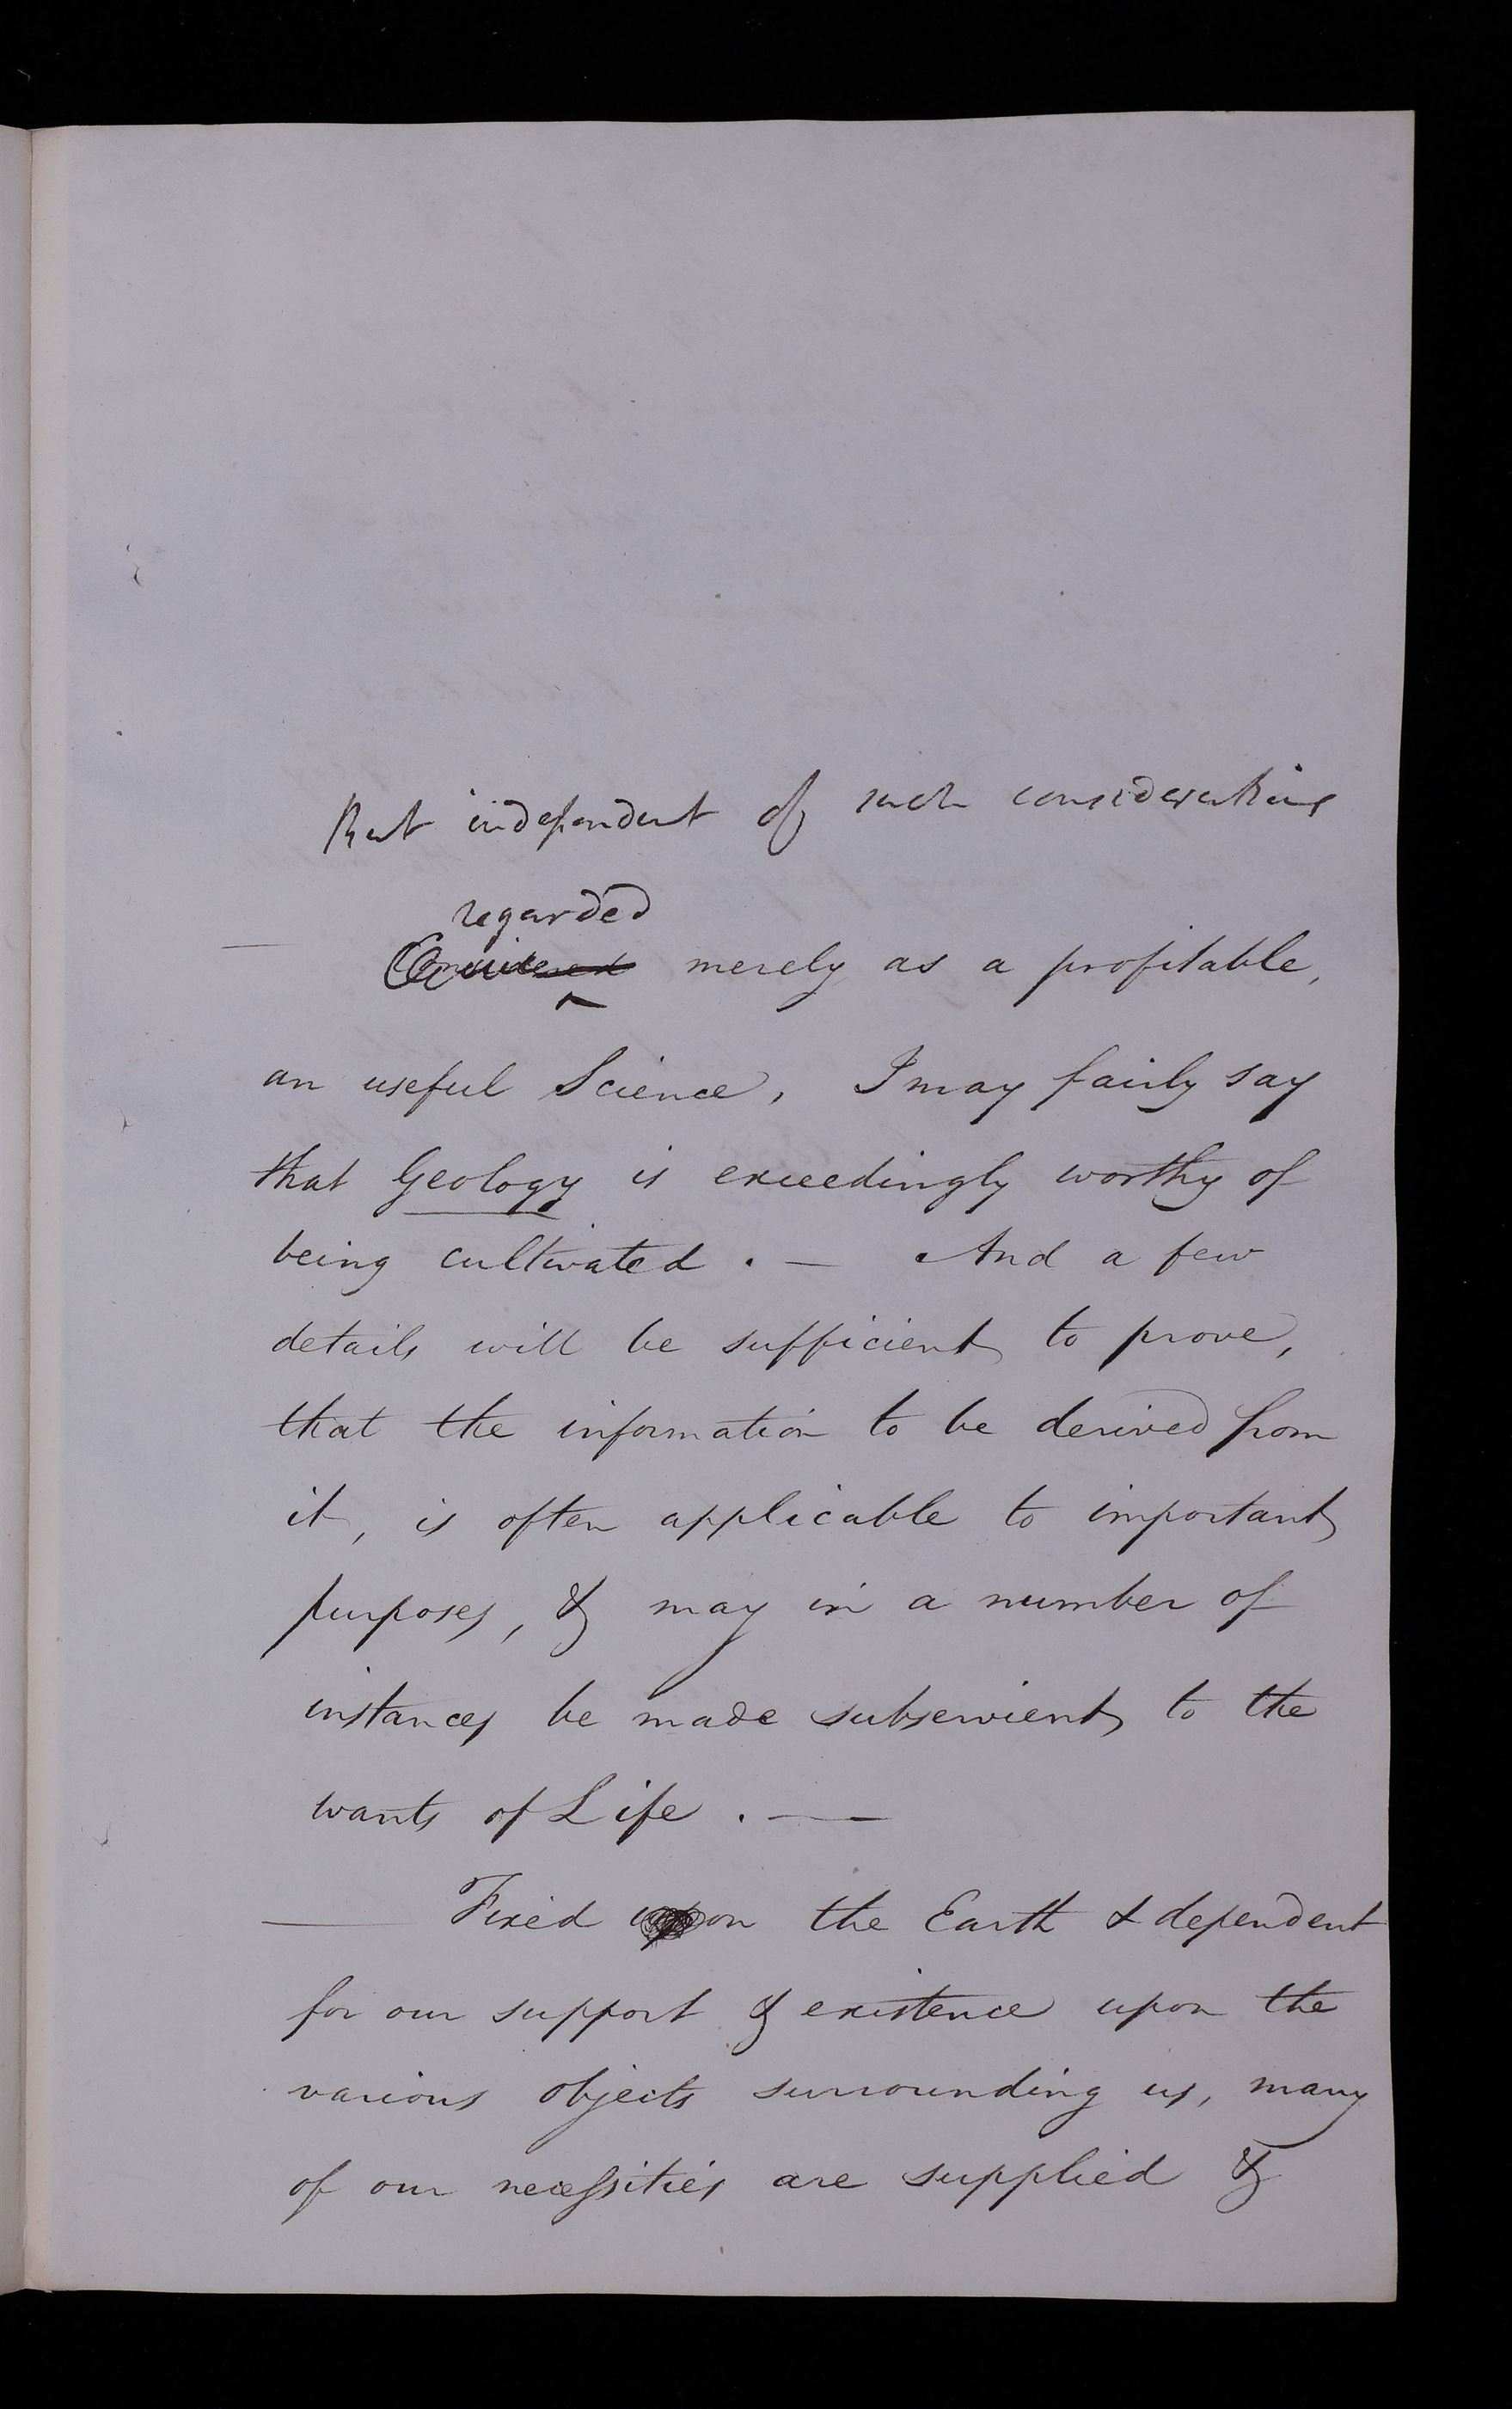 But independent of such considerations
regarded
— Considered merely as a profitable,
an useful Science, I may fairly say
that Geology is exceedingly worthy of
being cultivated . — And a few
details will be sufficient to prove,
that the information to be derived from
it, is often applicable to important
purposes, & may in a number of
instances be made subservient to the
wants of Life . —
— Fixed upon the Earth & dependent
for our support & existence upon the
various objects surrounding us, many
of our necessities are supplied &